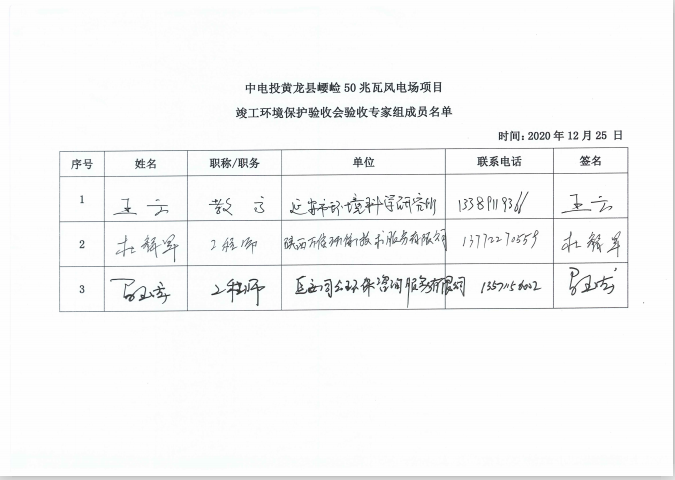 中电投黄龙县崾崄50兆瓦风电场项目
竣工环境保护验收会验收专家组成员名单
时间：2020年12月25日
序号 姓名 职称/职务 单位 联系电话 签名
1 王云 教高 延安市环境科学研究所 王云
2 工程师 技术服务有限公司 13772290559
3 工程师 环保咨询服务有限公司